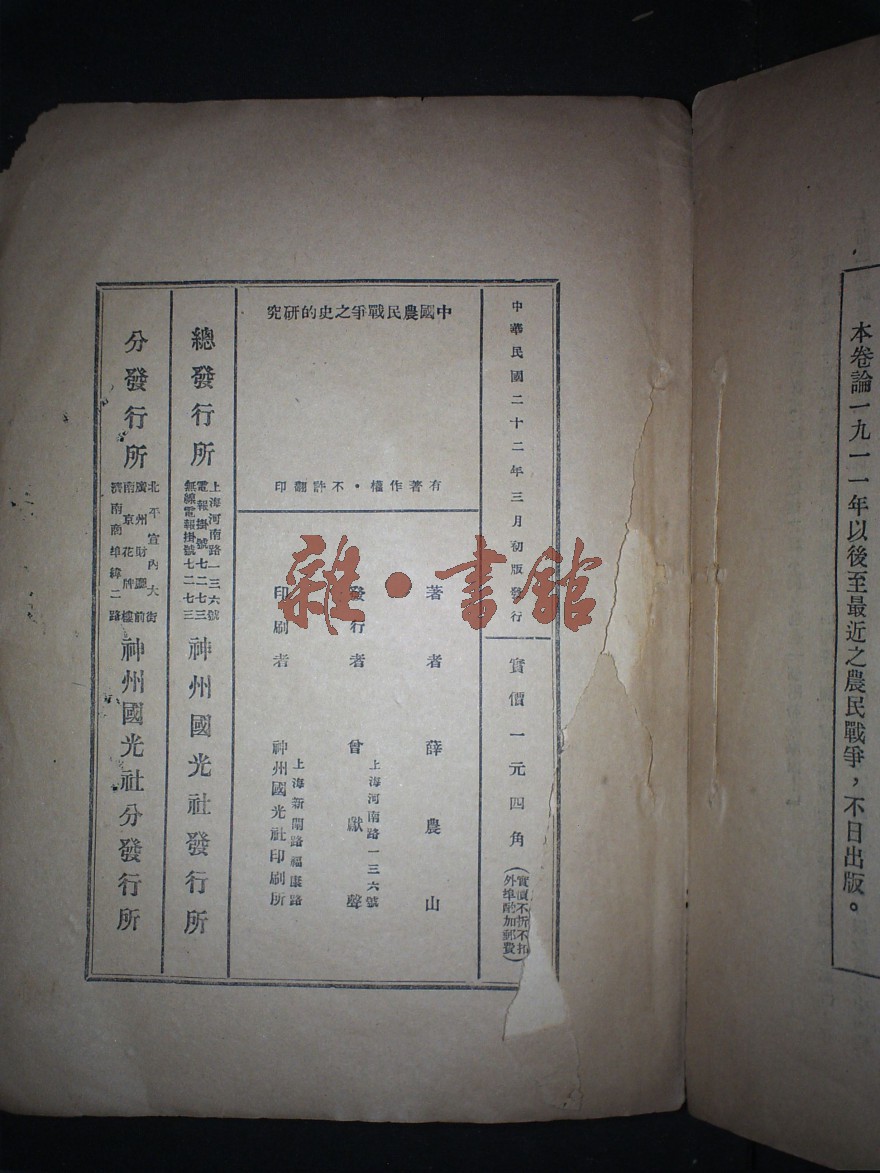 本卷論一九一一年以後至最近之農民戰爭，不日出版。
中華民國二十二年三月初版發行
實價一元四角
（實價不折不扣
外埠酌加郵費）
中國農民戰爭之史的研究
有著作權・不許翻印
著者 薛農山
發行者 曾獻聲
上海河南路一三六號
印刷者
上海新閘路福康路
神州國光社印刷所
總發行所
上海河南路一三六號
電報掛號七二七三
無線電報掛號七二七三
神州國光社發行所
分發行所
北平宣內大街
廣州財廳前
南京花牌樓
濟南商埠緯二路
神州國光社分發行所
雜・書館